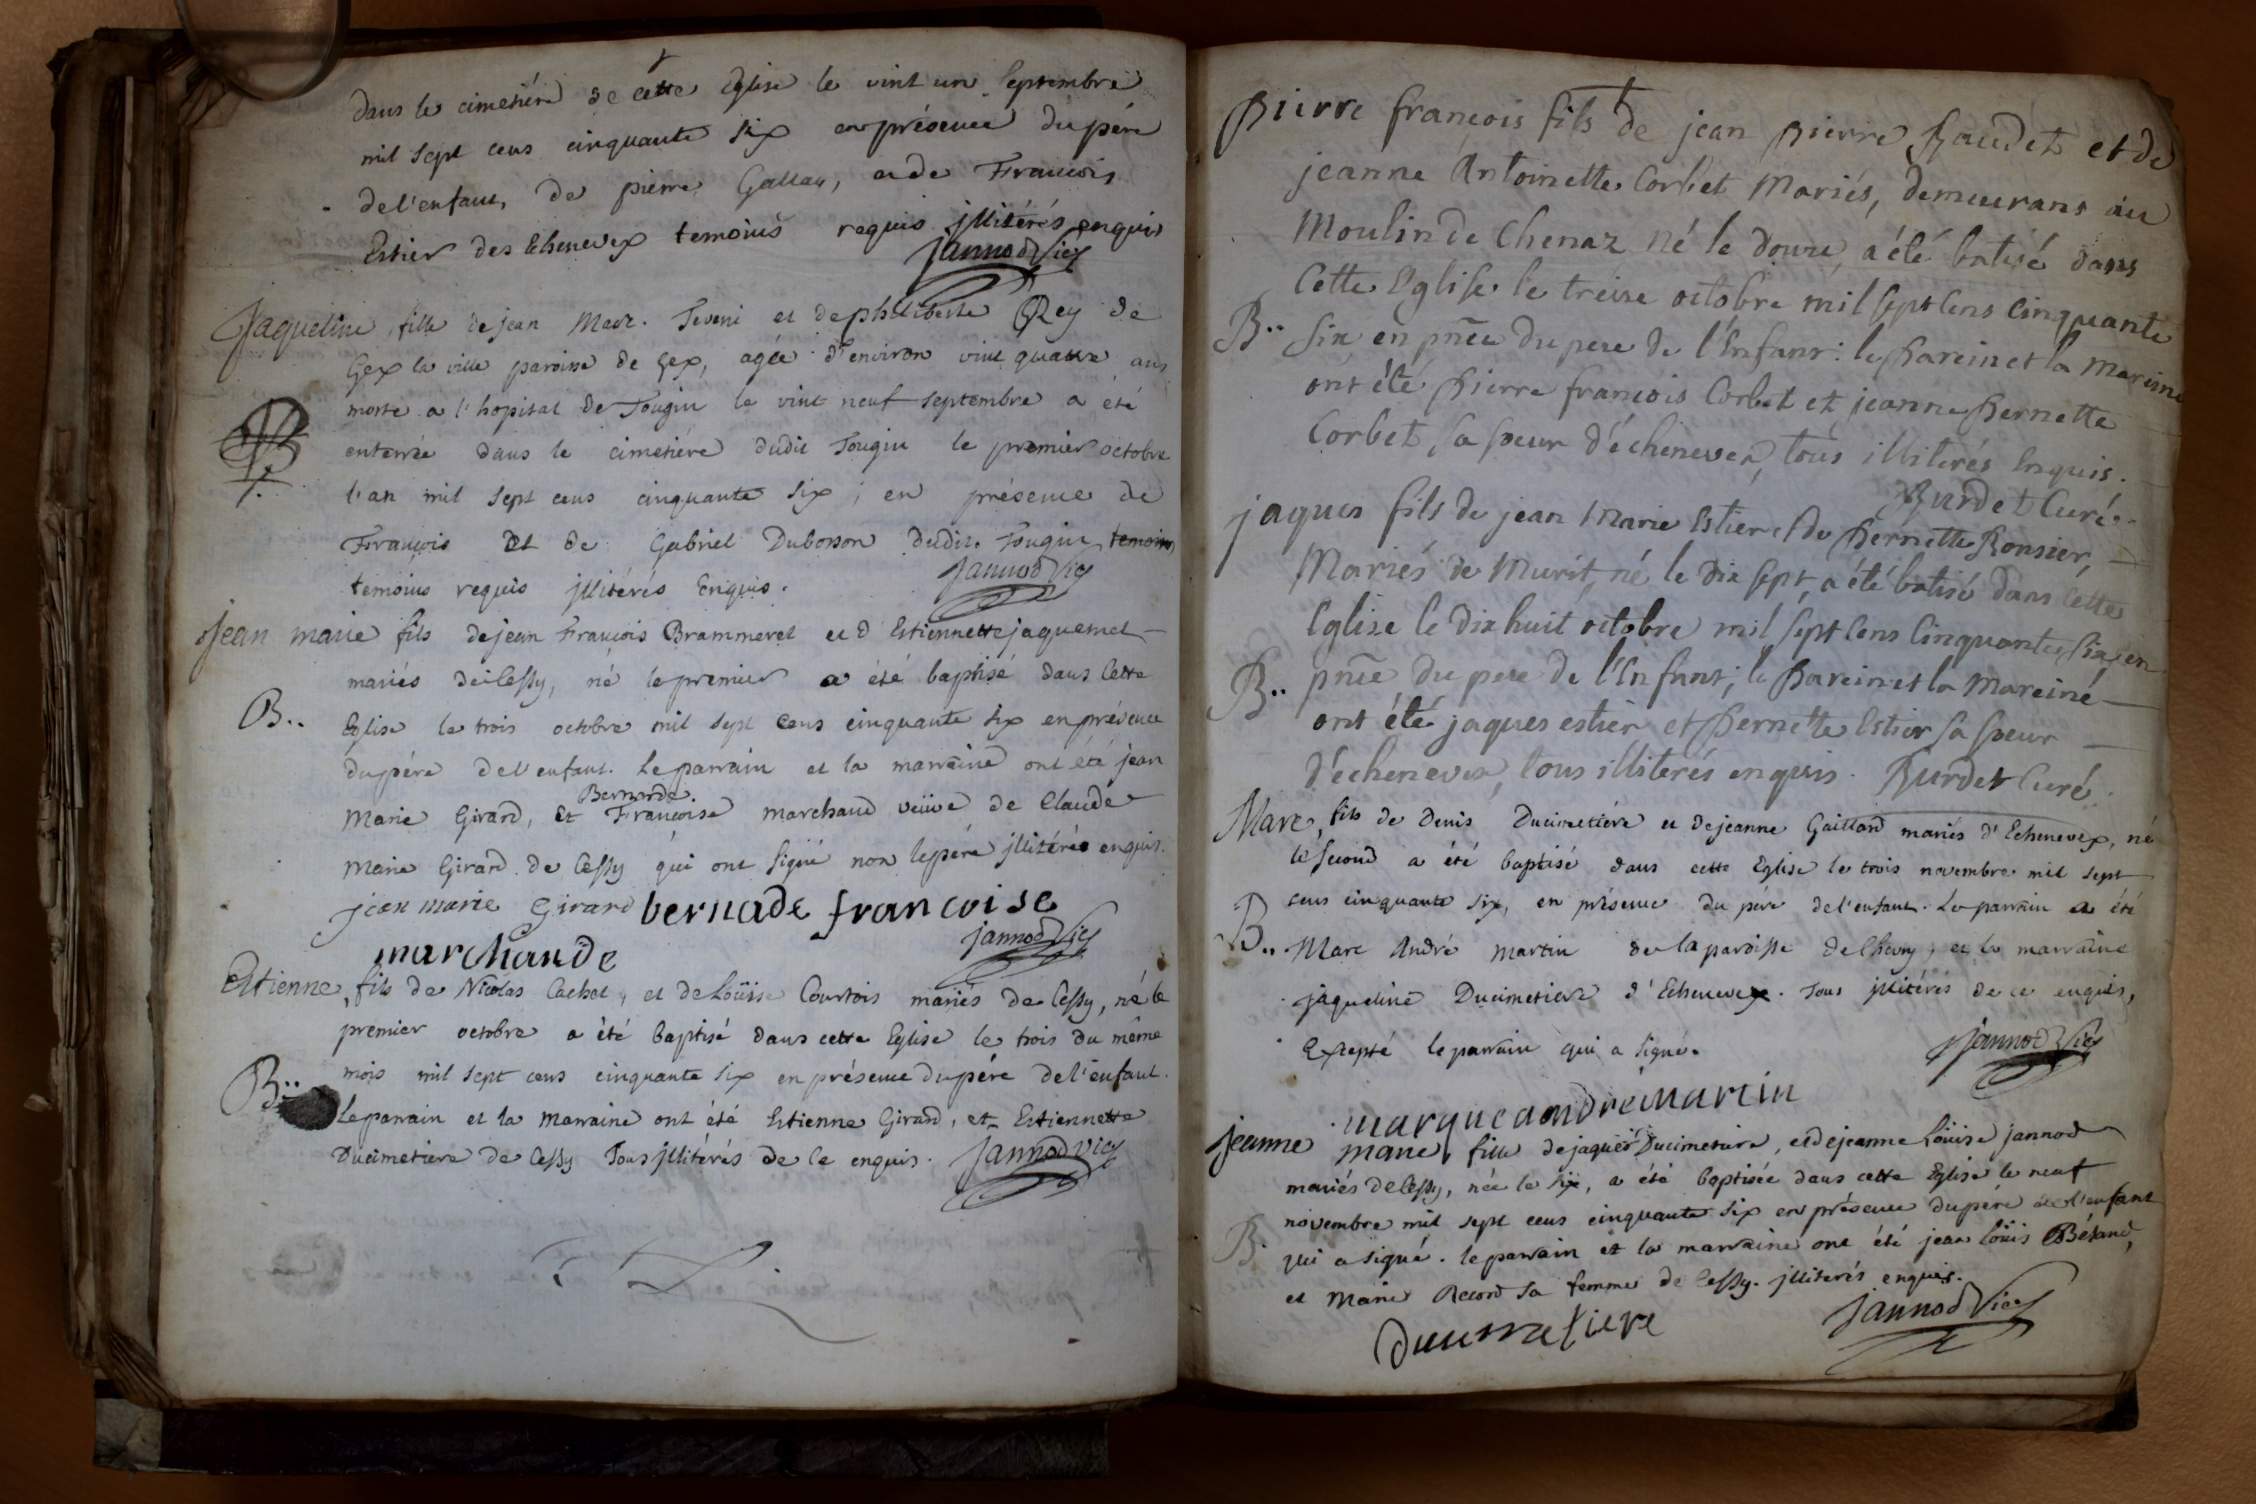 dans le cimetiére de cette Eglise le vint un Septembre
mil Sept cens cinquante six en présence du pére
de l'enfant, de pierre Gallay, et de François
Estier des Echenevex temoins requis jllitérés enquis
jannod Vic
Jaqueline, fille de jean Marc. et de philiberte Rey de
Gex la ville paroisse de Gex, agée d'environ vint quatre ans
morte a l'hopital de Tougin le vint neuf septembre a été
enterrée dans le cimetiére dudit Tougin le premier octobre
l'an mil sept cens cinquante six; en présence de
François et de Gabriel Dubosson dudit Tougin temoins
temoins requis jllitérés Enquis.
jannod Vic
Jean marie fils de jean François Brammerel et d'Estiennette jaquemet
mariés de Cessy, né le premier a été baptisé dans Cette
B..
Eglise le trois octobre mil sept Cens cinquante six en présence
du pére de l'enfant. Le parrain et la marraine ont été jean
Bernarde
Marie Girard, Et Françoise marchand veüve de Claude
Marie Girard de Cessy qui ont signé non le pére jllitérés enquis.
jean marie Girard bernade francoise
marchande
jannod Vic
Estienne, fils de Nicolas Cachat, et de Loüise Courtois mariés de Cessy, né le
premier octobre a été baptisé dans cette Eglise le trois du même
B..
mois mil sept cens cinquante six en présence du pére de l'enfant.
Le parrain et la marraine ont été Estienne Girard, et Estiennette
Ducimetiere de Cessy Tous jllitérés de ce enquis.
jannod Vic
Pierre françois fils de jean pierre Baudet et de
jeanne Antoinette Corbet Mariés, demeurans au
Moulin de Chenaz né le douze, a été batisé dans
Cette Eglise le treize octobre mil sept Cens Cinquante
B..
Six, en pñce du pere de l'Enfant: le pareinet la mareine
ont été pierre françois Corbet et jeanne pernette
Corbet, sa soeur d'échenevex, tous illiterés Enquis.
Burdet Curé.
jaques fils de jean Marie Estier et de pernette Ronsier,
Mariés de Murit, né le dix sept, a été batisé dans Cette
Eglise le dix huit octobre mil sept Cens Cinquante, six, en
B..
pñce du pere de l'Enfant; le pareinet la mareine
ont été jaques estier et pernette Estier sa soeur
d'échenevex, tous illiterés enquis. Burdet Curé.
Marc, fils de Denis Ducimetiére et de jeanne Gaillard mariés d'Echenevex, né
le second a été baptisé dans cette Eglise le trois novembre mil sept
B..
cens cinquante six, en présence du pére de l'enfant. Le parrain a été
Marc André Martin de la paroisse de Chevry, et la marraine
jaqueline Ducimetiere d'Echenevex. Tous jllitérés de ce enquis,
Excepté le parrain qui a signé.
jannod Vic
marque aondre martin
jeanne marie, fille de jaques Ducimetiere, et de jeanne Loüise jannod
mariés de Cessy, née le six, a été baptisée dans cette Eglise le neuf
B.
novembre mil sept cens cinquante six en présence du pére de l'enfant
qui a signé. le parrain et la marraine ont été jean Loüis Bétand,
et Marie Record sa femme de Cessy. jllitérés enquis.
jannod Vic
Ducimetiere